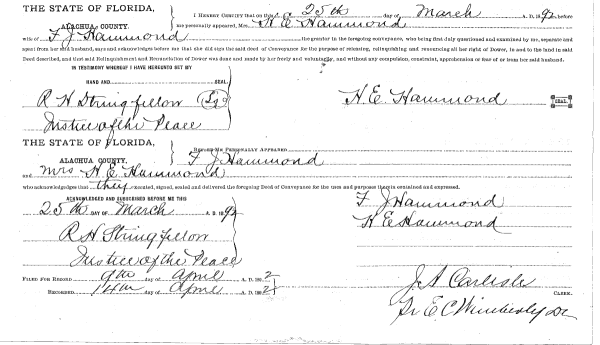 THE STATE OF FLORIDA,
ALACHUA COUNTY.
I HEREBY CERTIFY that on this 25th day of March A. D. 1892, before
me personally appeared, Mrs. H E Hammond
wife of F J Hammond the grantor in the foregoing conveyance, who being first duly questioned and examined by me, separate and
apart from her said husband, says and acknowledges before me that she did sign the said deed of Conveyance for the purpose of releasing, relinquishing and renouncing all her right of Dower, in and to the land in said
Deed described, and that said Relinquishment and Renunciation of Dower was done and made by her freely and voluntarily, and without any compulsion, constraint, apprehension or fear of or from her said husband.
IN TESTIMONY WHEREOF I HAVE HEREUNTO SET MY
HAND AND SEAL.
R H Stringfellow
Justice of the Peace
H. E. Hammond SEAL.
THE STATE OF FLORIDA,
ALACHUA COUNTY.
BEFORE ME PERSONALLY APPEARED F J Hammond
and Mrs H E Hammond
who acknowledges that they executed, signed, sealed and delivered the foregoing Deed of Conveyance for the uses and purposes therein contained and expressed.
ACKNOWLEDGED AND SUBSCRIBED BEFORE ME THIS
25th DAY OF March A. D. 1892
F J Hammond
H E Hammond
R H Stringfellow
Justice of the Peace
FILED FOR RECORD 9th day of April A. D. 1892
RECORDED 14th day of April A. D. 1892
J A Carlisle CLERK.
Pr E C Wimberly DC